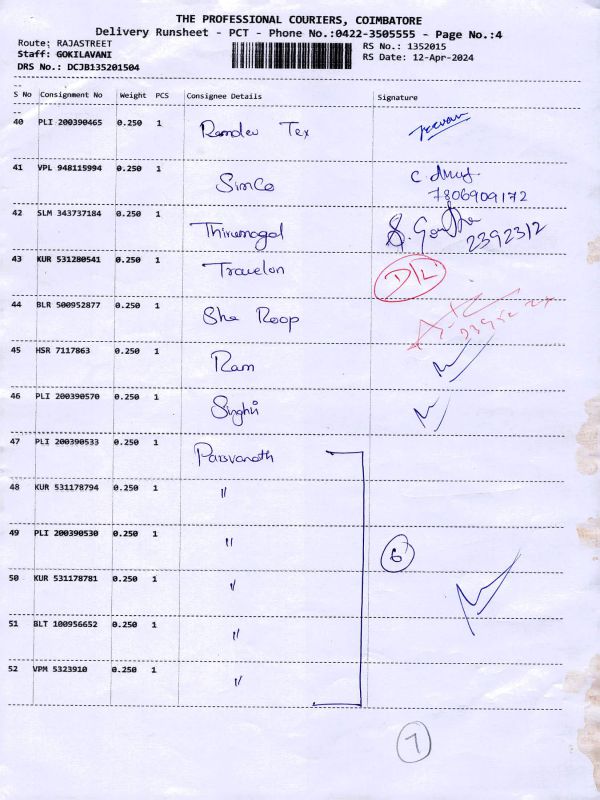 THE PROFESSIONAL COURIERS, COIMBATORE
Delivery Runsheet - PCT - Phone No.:0422-3505555 - Page No.:4
Route: RAJASTREET
Staff: GOKILAVANI
DRS No.: DCJB135201504
RS No.: 1352015
RS Date: 12-Apr-2024
S No Consignment No Weight PCS Consignee Details Signature
40 PLI 200390465 0.250 1 Ramdev Tex
41 VPL 948115994 0.250 1 SimCo
7806909172
42 SLM 343737184 0.250 1 Thirumagal 2392312
43 KUR 531280541 0.250 1 Travelon D/L
44 BLR 500952877 0.250 1 Sha Roop
45 HSR 7117863 0.250 1 Ram
46 PLI 200390570 0.250 1 Singhvi
47 PLI 200390533 0.250 1 Parsvanath
48 KUR 531178794 0.250 1 "
49 PLI 200390530 0.250 1 " 6
50 KUR 531178781 0.250 1 "
51 BLT 100956652 0.250 1 "
52 VPM 5323910 0.250 1 "
7